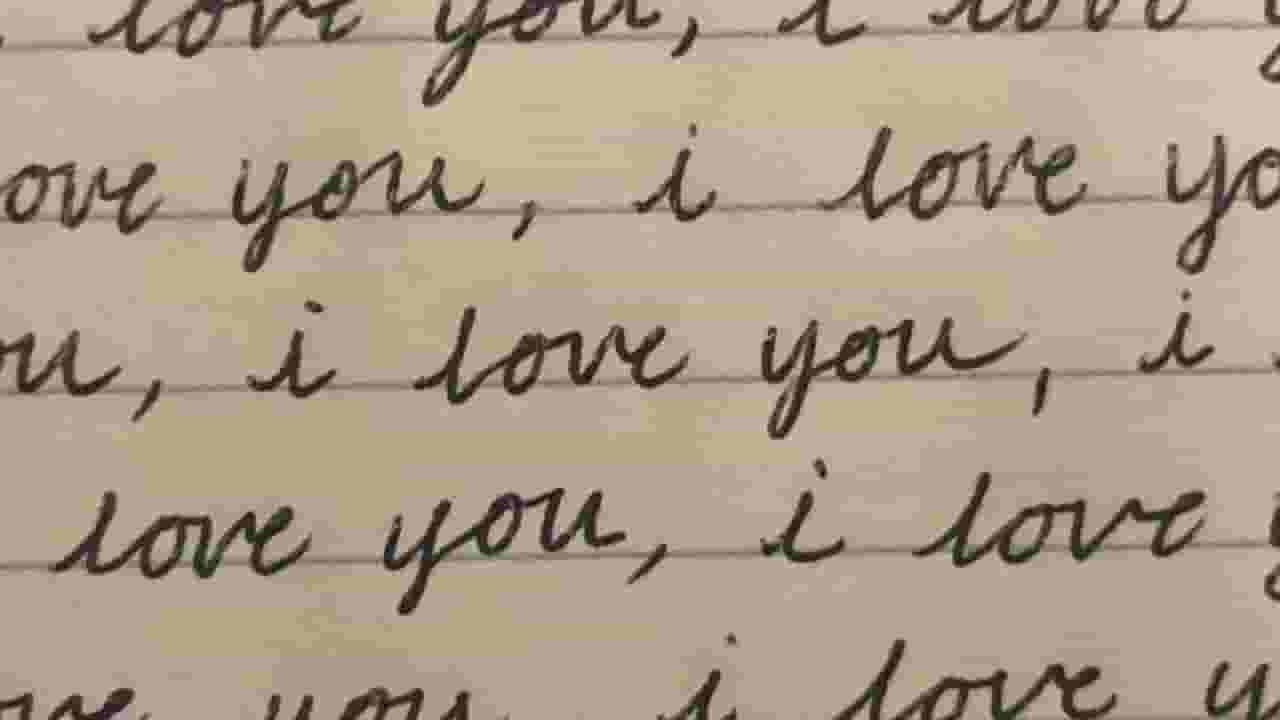 love you, i love
ove you, i love yo
ou, i love you, i
love you, i love y
ove you, i love y